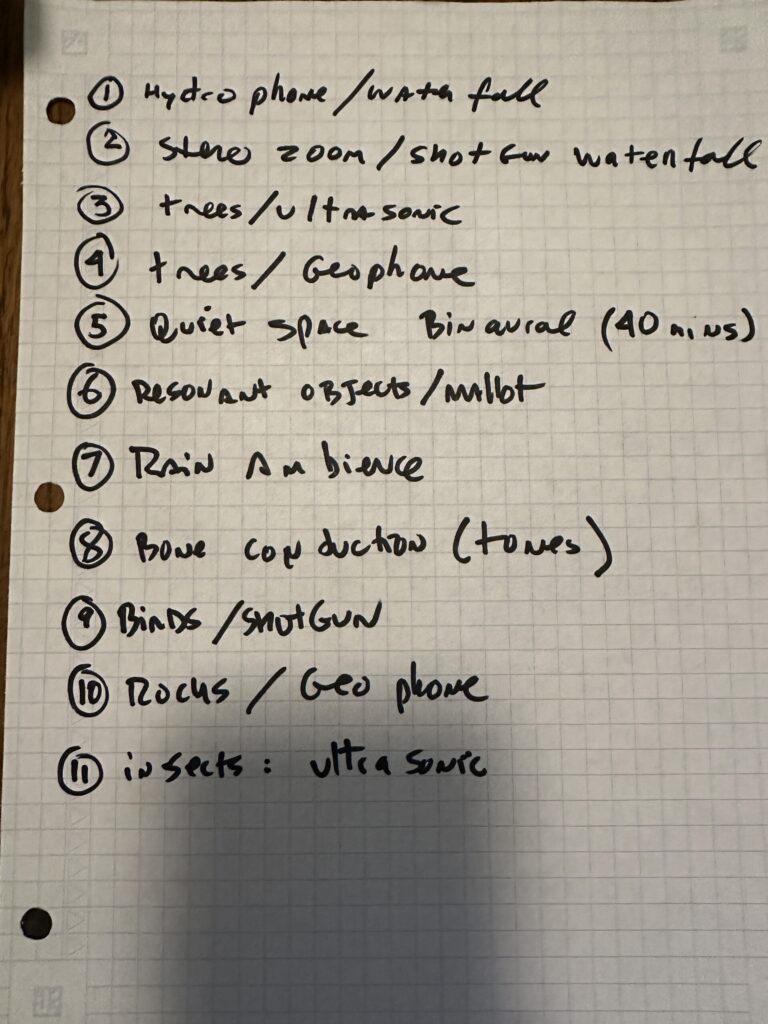 ① Hydrophone/waterfall
② Stereo zoom/shotgun waterfall
③ trees/ultrasonic
④ trees/Geophone
⑤ Quiet space Binaural (40 mins)
⑥ Resonant objects/mallet
⑦ Rain Ambience
⑧ Bone conduction (tones)
⑨ Birds/SHOTGUN
⑩ Rocks/Geophone
⑪ insects: ultrasonic